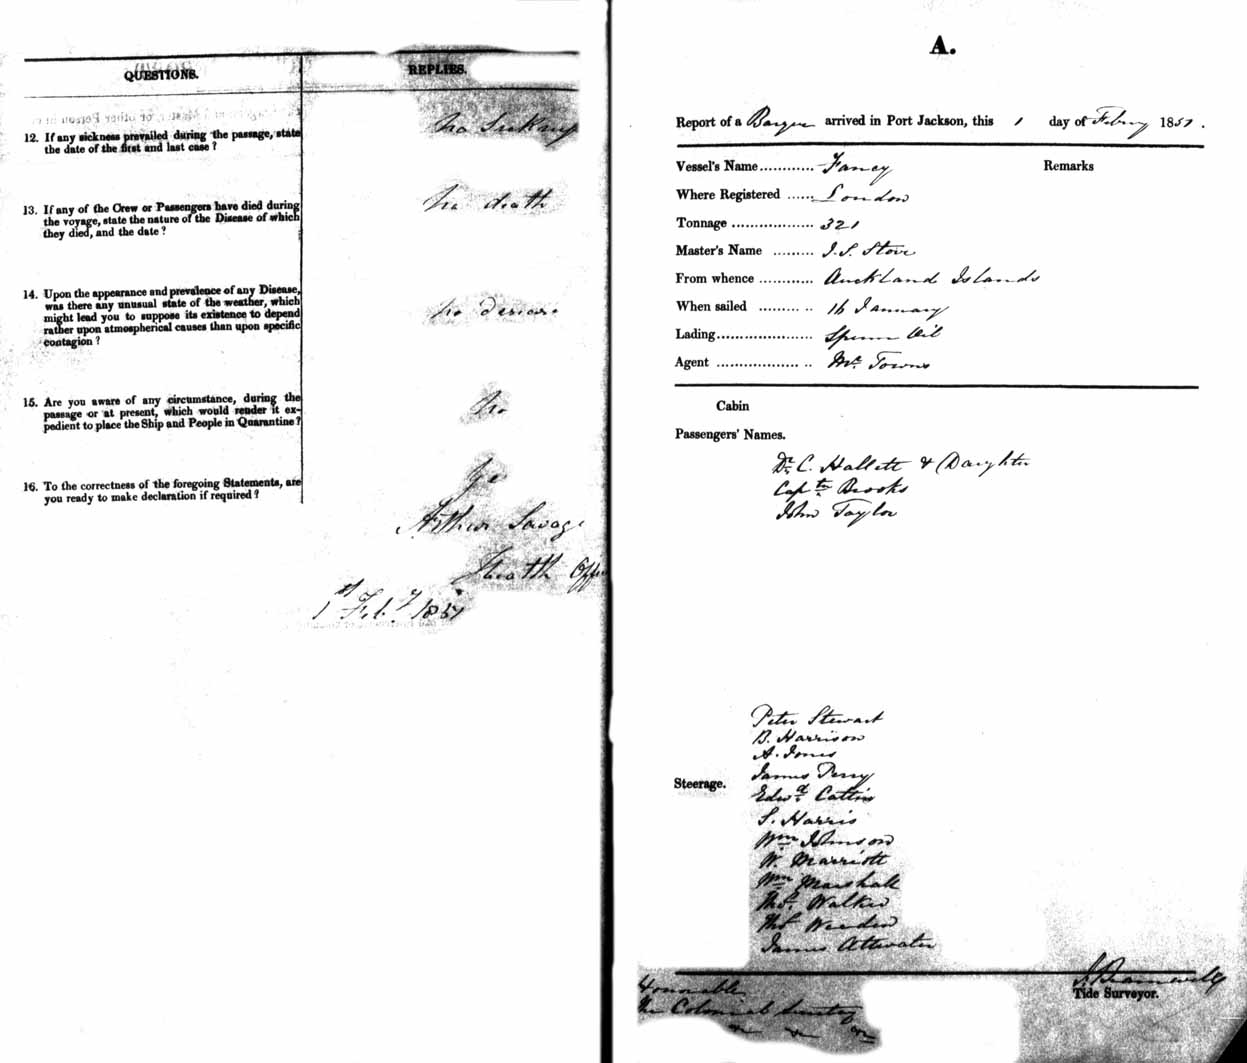 QUESTIONS.
REPLIES.
12. If any sickness prevailed during the passage, state
the date of the first and last case ?
No Sickness
13. If any of the Crew or Passengers have died during
the voyage, state the nature of the Disease of which
they died, and the date ?
No death
14. Upon the appearance and prevalence of any Disease,
was there any unusual state of the weather, which
might lead you to suppose its existence to depend
rather upon atmospherical causes than upon specific
contagion ?
No disease
15. Are you aware of any circumstance, during the
passage or at present, which would render it ex-
pedient to place the Ship and People in Quarantine ?
No
16. To the correctness of the foregoing Statements, are
you ready to make declaration if required ?
Yes
Arthur Savage
Health Offi
1st Feby 1851
A.
Report of a Barque arrived in Port Jackson, this 1 day of Febry 1851.
Vessel's Name ............ Fancy
Remarks
Where Registered ...... London
Tonnage .................. 321
Master's Name ......... J. S. Stove
From whence ............ Auckland Islands
When sailed ............ 16 January
Lading ...................... Sperm Oil
Agent .................... Mr. Towns
Cabin
Passengers' Names.
Dr. C. Hallett & Daughter
Captn. Brooks
John Taylor
Steerage.
Peter Stewart
B. Harrison
A. Jones
James Perry
Edwd. Cattin
S. Harris
Wm Johnson
W. Marriott
Wm Marshall
Thos. Walker
Thos
James Attwater
Honorable
The Colonial Secretary
Tide Surveyor.